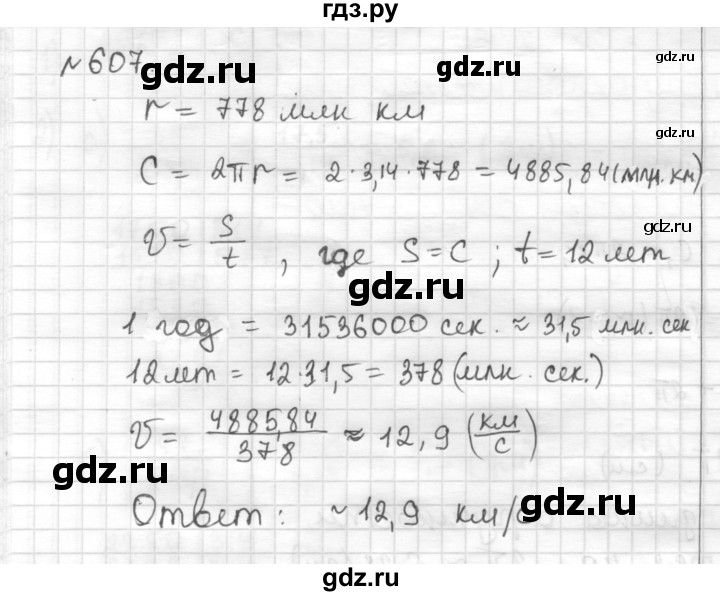 гдз.ру
№607
gdz.ru
gdz.ru
gdz.ru
r = 778 млн км
gdz.ru
C = 2πr = 2·3,14·778 = 4885,84 (млн. км)
gdz.ru
v = S/t, где S = C; t = 12 лет
gdz.ru
1 год = 31536000 сек. ≈ 31,5 млн. сек
gdz.ru
12 лет = 12·31,5 = 378 (млн. сек.)
v = 4885,84/378 ≈ 12,9 (км/с)
gdz.ru
gdz.ru
Ответ: ~12,9 км/с
gdz.ru
gdz.ru